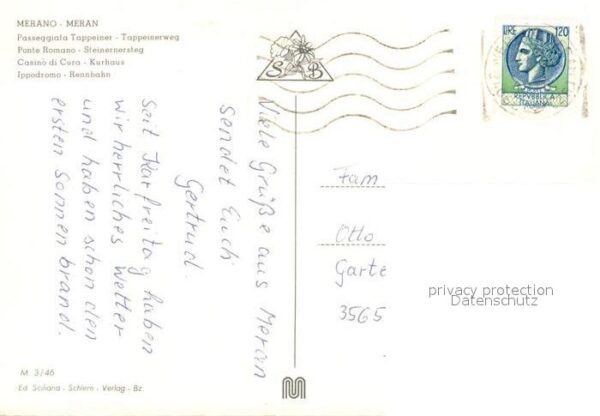 MERANO - MERAN
Passeggiata Tappeiner - Tappeinerweg
Ponte Romano - Steinernersteg
Casinò di Cura - Kurhaus
Ippodromo - Rennbahn
LIRE 120
REPVBBLICA
ITALIANA
S B
Viele Grüße aus Meran
sendet Euch
Gertrud.
Seit Karfreitag haben
wir herrliches Wetter
und haben schon den
ersten Sonnenbrand.
Fam
Otto
Garte
3565
privacy protection
Datenschutz
M. 3/46
Ed. Sciliana - Schlern - Verlag - Bz.